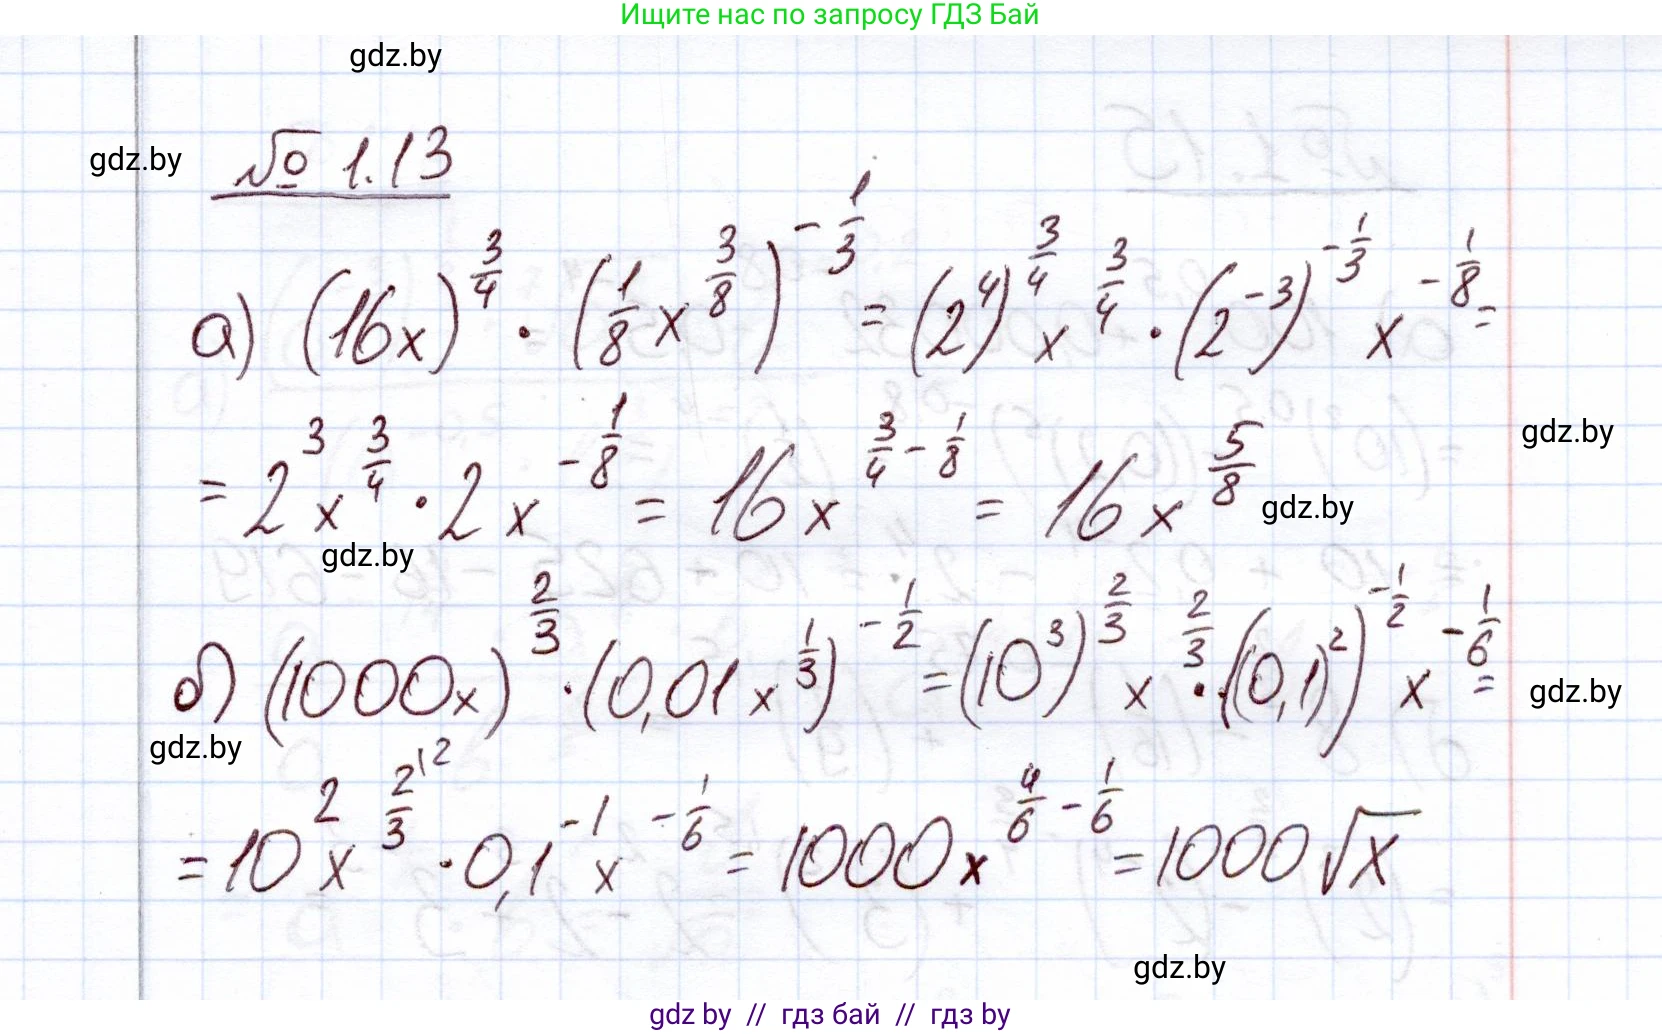 Ищите нас по запросу ГДЗ Бай
gdz.by
gdz.by
№ 1.13
а) (16x)^{3/4} · (1/8 x^{3/8})^{-1/3} = (2^4)^{3/4} x^{3/4} · (2^{-3})^{-1/3} x^{-1/8} =
gdz.by
= 2^3 x^{3/4} · 2 x^{-1/8} = 16 x^{3/4 - 1/8} = 16 x^{5/8}
gdz.by
gdz.by
б) (1000x)^{2/3} · (0,01 x^{1/3})^{-1/2} = (10^3)^{2/3} x^{2/3} · ((0,1)^2)^{-1/2} x^{-1/6} =
gdz.by
gdz.by
= 10^2 x^{2/3^{12}} · 0,1^{-1} x^{-1/6} = 1000 x^{4/6 - 1/6} = 1000 √x
gdz.by
gdz by // гдз бай // гдз by